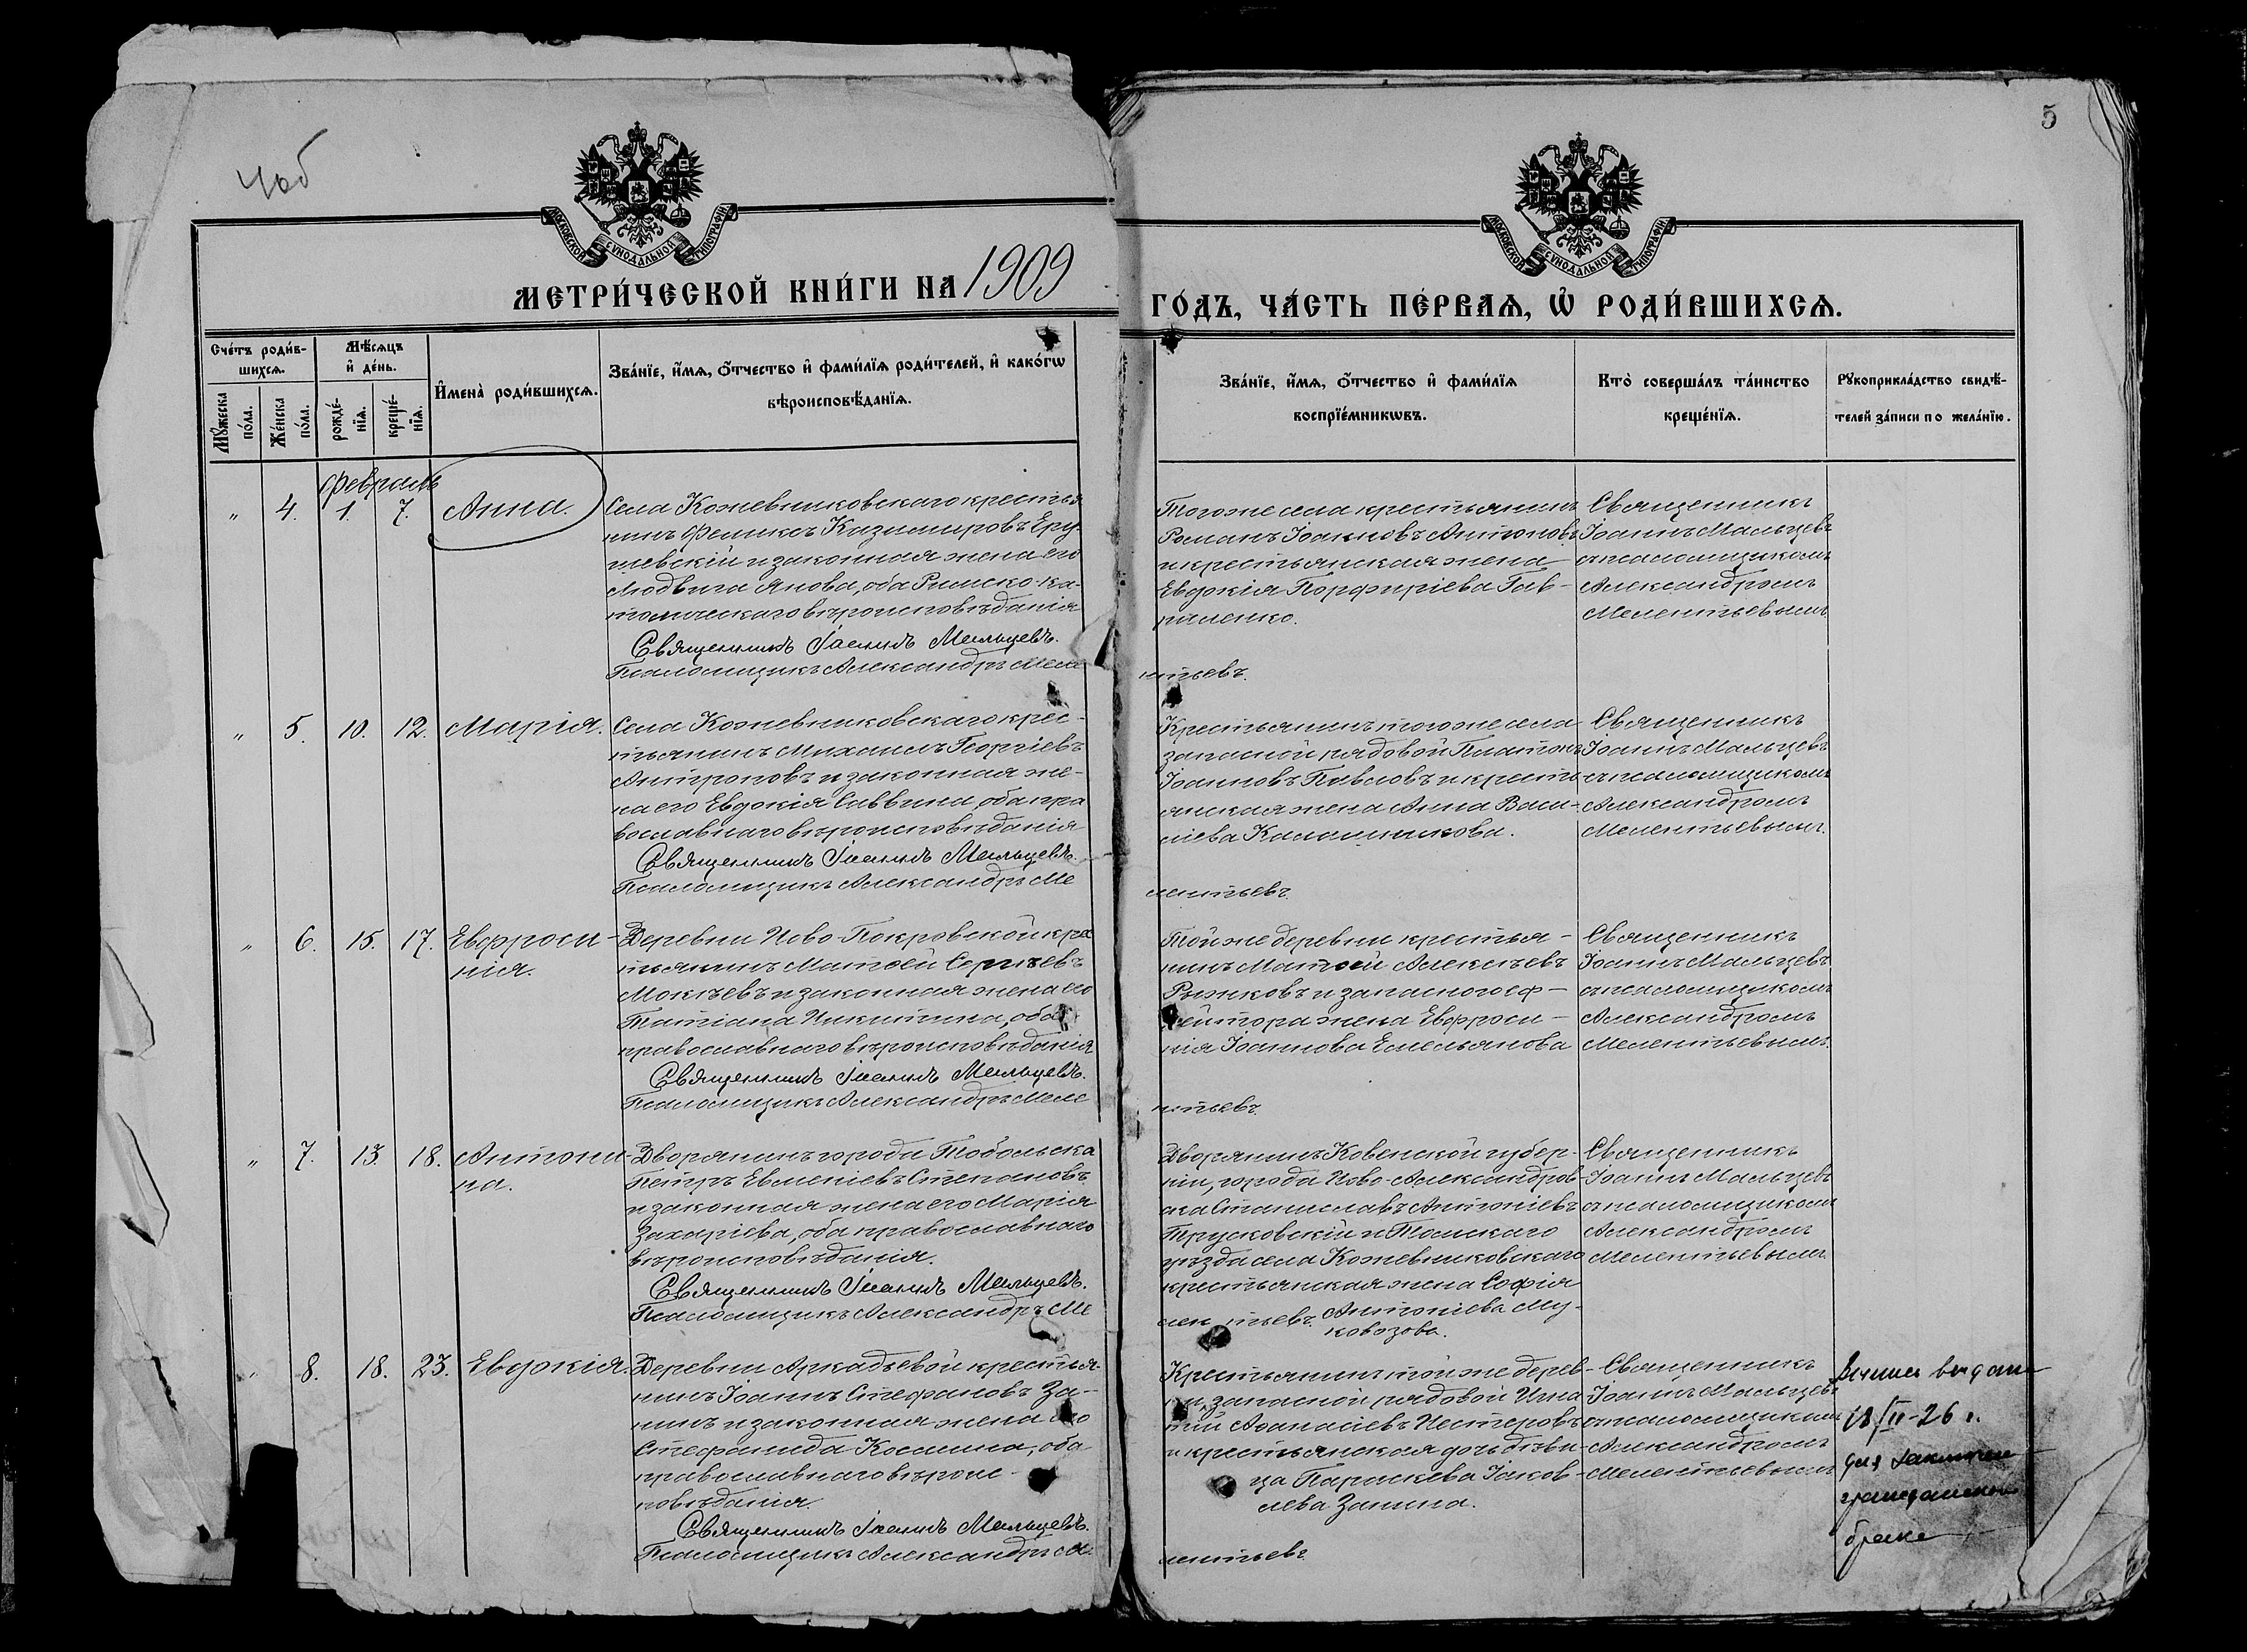 Чаб
5
МОСКОВСКОЙ СѴНОДАЛЬНОЙ ТИПОГРАФІИ
МОСКОВСКОЙ СѴНОДАЛЬНОЙ ТИПОГРАФІИ
МЕТРИ́ЧЕСКОЙ КНИ́ГИ НА 1909
ГО́ДЪ, ЧА́СТЬ ПЕ́РВАѦ, Ѡ҆ РОДИ́ВШИХСѦ.
Сче́тъ роди́в-
шихсѧ.
Мꙋ́жеска по́ла.
Же́нска по́ла.
Мѣ́сѧцъ
и҆ де́нь.
рожде́-
нїѧ.
креще́-
нїѧ.
И҆мена̀ роди́вшихсѧ.
Зва́нїе, и҆́мѧ, ѻ҆́тчество и҆ фами́лїѧ роди́телей, и҆ како́гѡ
вѣроисповѣ́данїѧ.
Зва́нїе, и҆́мѧ, ѻ҆́тчество и҆ фами́лїѧ
воспрїе́мникѡвъ.
Кто̀ соверша́лъ та́инство
креще́нїѧ.
Рꙋкоприкла́дство свидѣ́-
телей за́писи по жела́нїю.
Февраль
" 4. 1. 7. Анна.
Села Кожевниковскаго крестья
нинъ Феликсъ Казимировъ Еру
шевскій и законная жена его
Людвига Янова, оба Римско-ка-
толическаго вѣроисповѣданія
Священникъ Іоаннъ Мальцевъ.
Псаломщикъ Александръ Меле
нтьевъ.
Тогоже села крестьянинъ
Романъ Іоанновъ Антоновъ
и крестьянская жена
Евдокія Порфиріева Гав-
риленко.
Священникъ
Іоаннъ Мальцевъ
съ псаломщикомъ
Александромъ
Мелентьевымъ
" 5. 10. 12. Марія.
Села Кожевниковскаго крес-
тьянинъ Михаилъ Георгіевъ
Антроповъ и законная же-
на его Евдокія Саввина, оба пра
вославнаго вѣроисповѣданія
Священникъ Іоаннъ Мальцевъ.
Псаломщикъ Александръ Ме
лентьевъ.
Крестьянинъ тогоже села
запасной рядовой Платонъ
Іоанновъ Павловъ и кресть
янская жена Анна Васи-
ліева Калашникова.
Священникъ
Іоаннъ Мальцевъ
съ псаломщикомъ
Александромъ
Мелентьевымъ.
" 6. 15. 17. Евфроси-
нія.
Деревни Ново-Покровской кре
тьянинъ Матѳей Сергѣевъ
Мокѣевъ и законная жена его
Татіана Никитина, оба
православнаго вѣроисповѣданія
Священникъ Іоаннъ Мальцевъ.
Псаломщикъ Александръ Меле
нтьевъ.
Той же деревни крестья-
нинъ Матѳей Алексѣевъ
Рыжковъ и запасного еф-
рейтора жена Евфроси-
нія Іоаннова Емельянова
Священникъ
Іоаннъ Мальцевъ
съ псаломщикомъ
Александромъ
Мелентьевымъ.
" 7. 13. 18. Антони-
на.
Дворянинъ города Тобольска
Петръ Евменіевъ Степановъ
и законная жена его Марія
Захаріева, оба православнаго
вѣроисповѣданія.
Священникъ Іоаннъ Мальцевъ.
Псаломщикъ Александръ Ме
лентьевъ.
Дворянинъ Ковенской губер-
ніи, города Ново-Александров-
ска Станиславъ Антоніевъ
Трусковскій и Томскаго
уѣзда села Кожевниковскаго
крестьянская жена Софія
Антоніева Му-
ковозова.
Священникъ
Іоаннъ Мальцевъ
съ псаломщикомъ
Александромъ
Мелентьевымъ
" 8. 18. 23. Евдокія.
Деревни Аркадьевой крестья-
нинъ Іоаннъ Стефановъ За-
нинъ и законная жена его
Стефанида Космина, оба
православнаго вѣроис-
повѣданія.
Священникъ Іоаннъ Мальцевъ.
Псаломщикъ Александръ Ме
лентьевъ.
Крестьянинъ той же дерев-
ни, запасной рядовой Игна
тій Аѳанасіевъ Нестеровъ
и крестьянская дочь дѣви-
ца Параскева Іаков-
лева Занина.
Священникъ
Іоаннъ Мальцевъ
съ псаломщикомъ
Александромъ
Мелентьевымъ
выдана
18/II-26 г.
для заключен
гражданского
брака